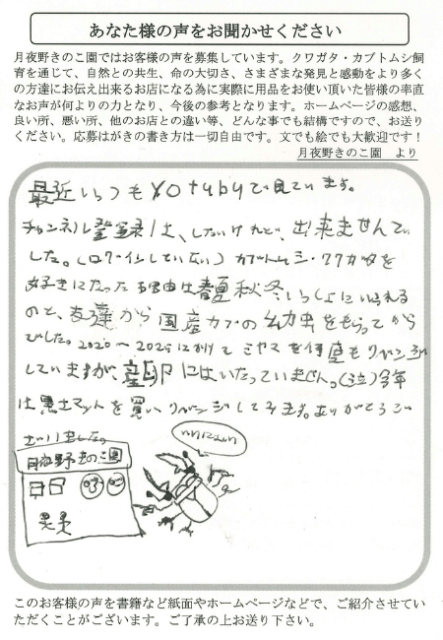 あなた様の声をお聞かせください
月夜野きのこ園ではお客様の声を募集しています。クワガタ・カブトムシ飼
育を通じて、自然との共生、命の大切さ、さまざまな発見と感動をより多く
の方達にお伝え出来るお店になる為に実際に用品をお使い頂いた皆様の率直
なお声が何よりの力となり、今後の参考となります。ホームページの感想、
良い所、悪い所、他のお店との違い等、どんな事でも結構ですので、お送り
ください。応募はがきの書き方は一切自由です。文でも絵でも大歓迎です！
月夜野きのこ園　より
最近いつも yotubuで見ています。
チャンネル登録は、したいけれど、出来ませんでし
した。(ログインしていない) カブトムシ・クワガタを
好きになった理由は春夏秋冬いっしょにいられる
のと、友達から国産カブの幼虫をもらってから
でした。2020〜2025にかけてミヤマを何度もリベンジ
していますが産卵にはいたっていません。(泣)今年
は黒土マットを買いリベンジしてみます。ありがとうご
ざいました。
月夜野きのこ園
このお客様の声を書籍など紙面やホームページなどで、ご紹介させてい
ただくことがございます。ご了承の上お送り下さい。